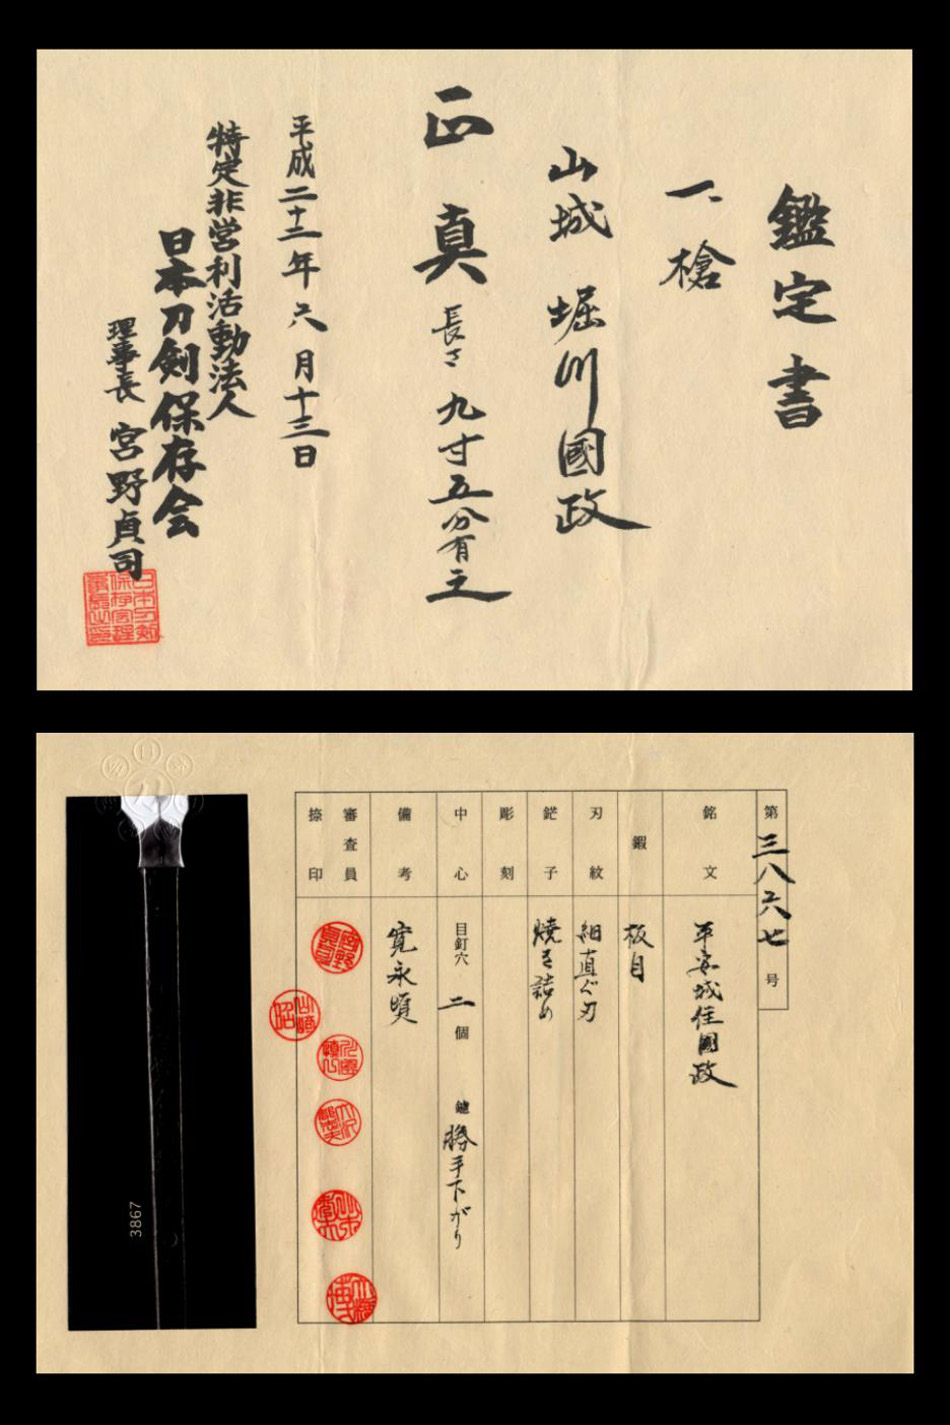 鑑定書
一、槍
山城 堀川國政
正真 長さ 九寸五分有之
平成二十二年六月十三日
特定非営利活動法人
日本刀剣保存会
理事長 宮野貞司
第三八六七号
銘文 平安城住國政
鍜 板目
刃紋 細直ぐ刃
鋩子 焼き詰め
彫刻
中心 目釘穴 二個 鑢 勝手下がり
備考 寛永頃
審査員
捺印
3867